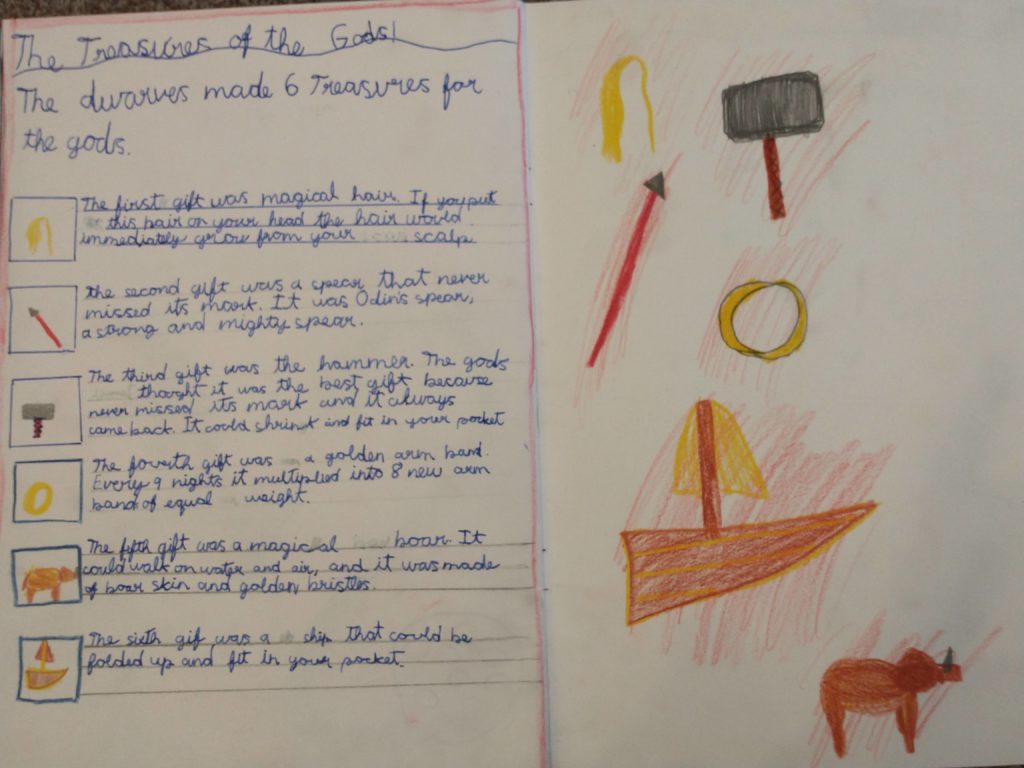 The Treasures of the Gods!
The dwarves made 6 Treasures for
the gods.
The first gift was magical hair. If you put
this hair on your head the hair would
immediately grow from your scalp.
the second gift was a spear that never
missed its mark. It was Odin's spear,
a strong and mighty spear.
The third gift was the hammer. The gods
thought it was the best gift because
never missed its mark and it always
came back. It could shrink and fit in your pocket
The fourth gift was a golden arm band.
Every 9 nights it multiplied into 8 new arm
band of equal weight.
The fifth gift was a magical boar. It
could walk on water and air, and it was made
of boar skin and golden bristles.
The sixth gif was a ship that could be
folded up and fit in your pocket.